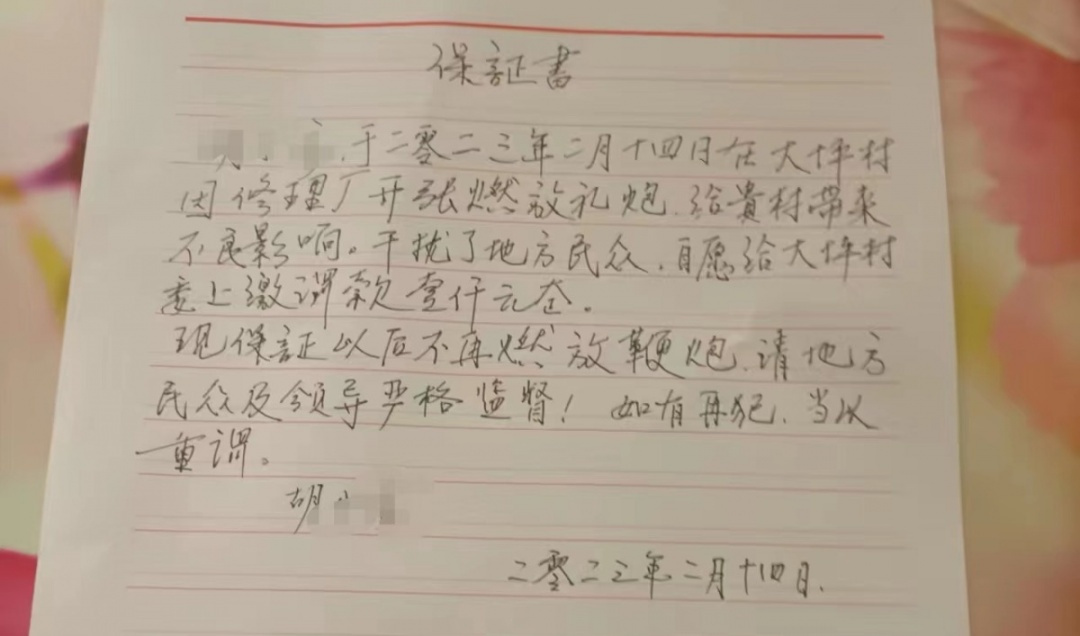 保証書
于二零二三年二月十四日在大坪村
因修理厂开张燃放礼炮.给貴村带来
不良影响。干扰了地方民众.自愿给大坪村
委上缴 款壹仟元仝。
现保証以后不再燃放鞭炮.请地方
民众及领导严格监督！如有再犯.当以
重 。
胡
二零二三年二月十四日.